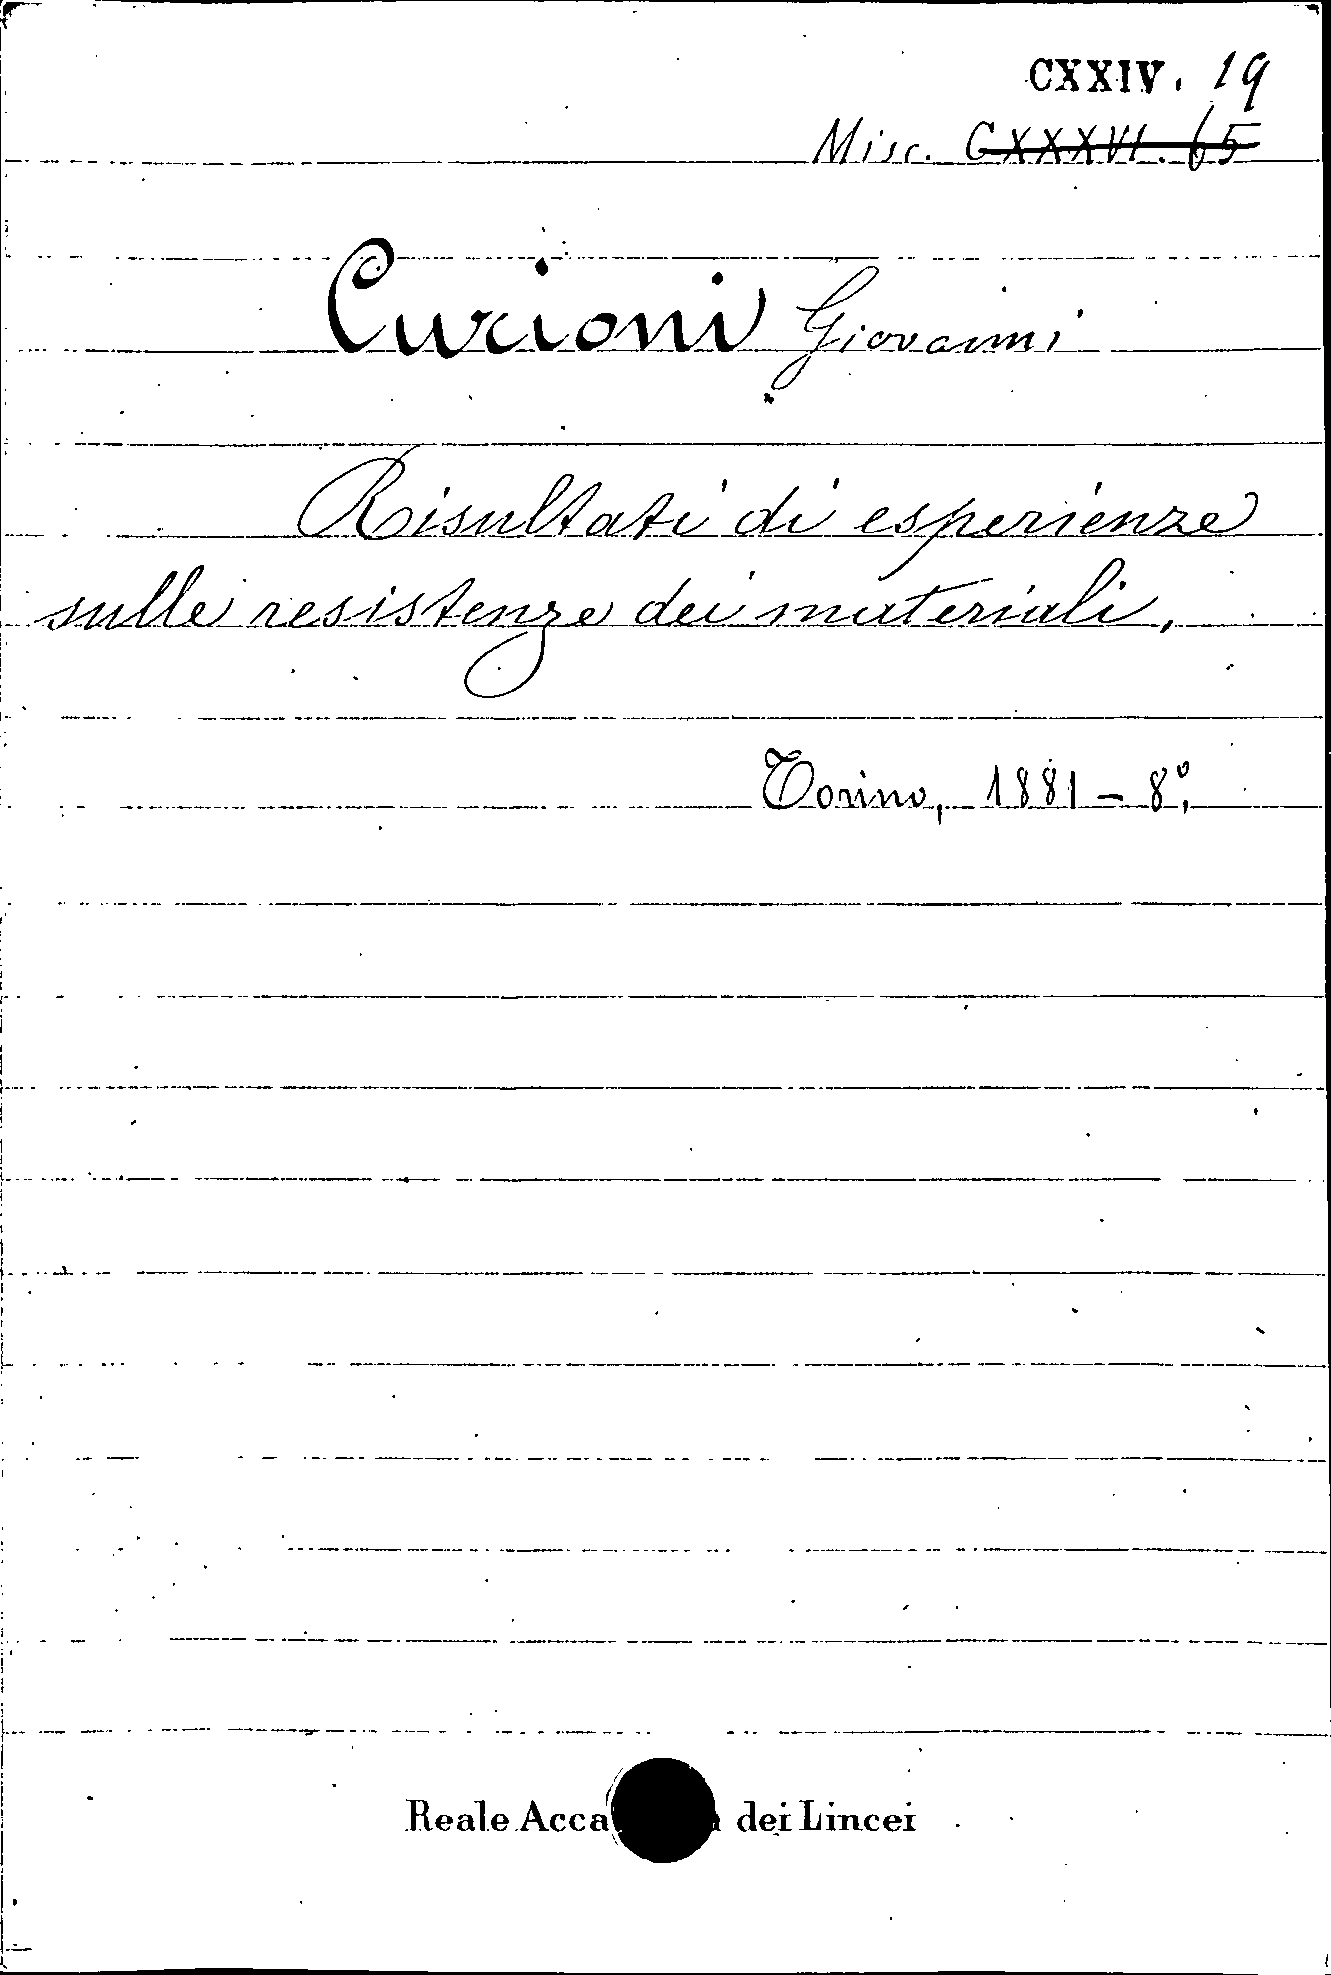 CXXIV. 19
Misc. CXXXVI. 65
Curioni Giovanni
Risultati di esperienze
sulle resistenze dei materiali,
Torino, 1881 - 8°,
Reale Acca dei Lincei